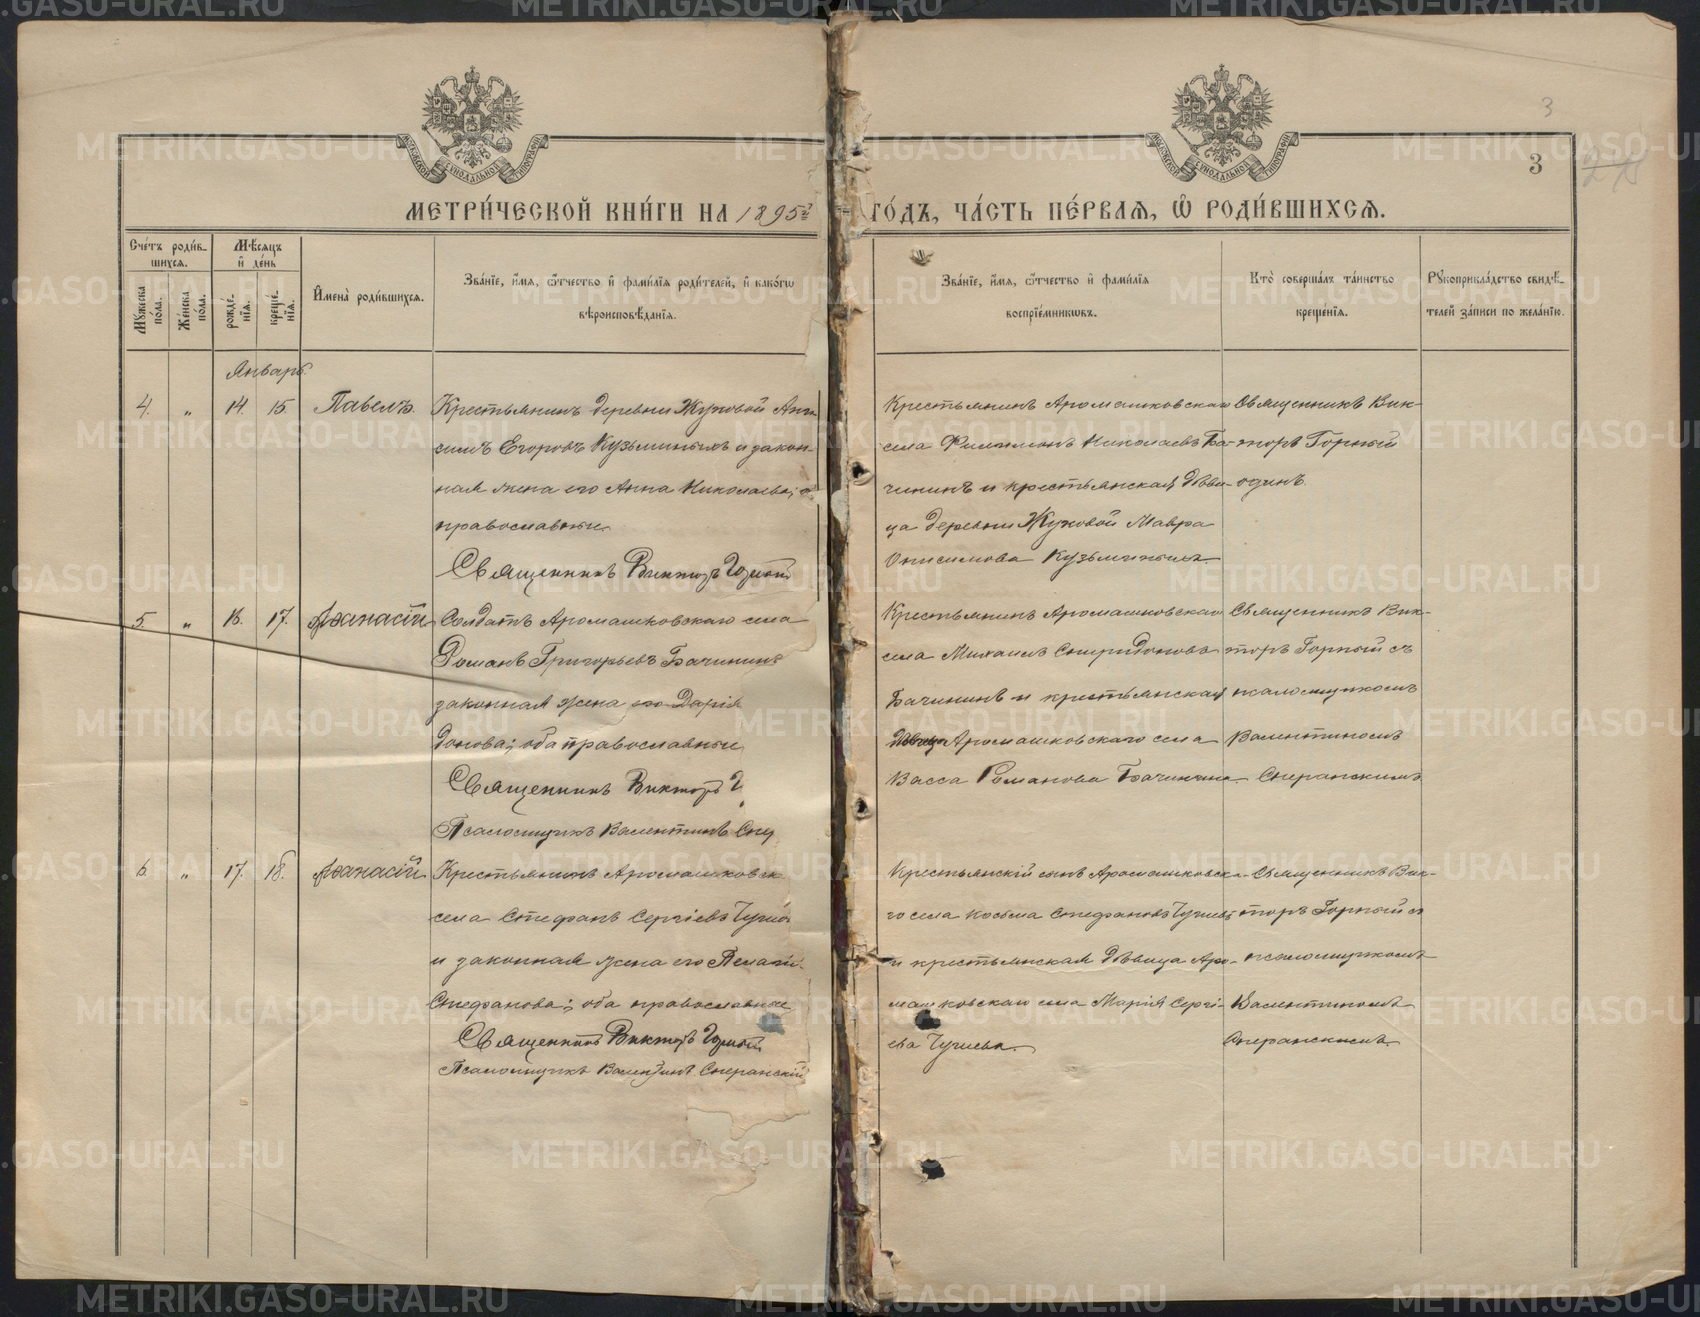 3
3
МОСКОВСКОЙ СѴНОДАЛЬНОЙ ТИПОГРАФІИ
МОСКОВСКОЙ СѴНОДАЛЬНОЙ ТИПОГРАФІИ
МЕТРИ́ЧЕСКОЙ КНИ́ГИ НА 1895й ГО́ДЪ, ЧА́СТЬ ПЕ́РВАЯ, Ѽ РОДИ́ВШИХСЯ.
Сче́тъ роди́в-
шихся.
Мѣ́сяцъ
и҆ де́нь
Мꙋ́жеска по́ла.
Же́нска по́ла.
рожде́нїя.
креще́нїя.
И҆мена̀ роди́вшихся.
Зва́нїе, и҆́мя, ѻ҆́тчество и҆ фами́лїя роди́телей, и҆ како́гѡ
вѣроисповѣ́данїя.
Зва́нїе, и҆́мя, ѻ҆́тчество и҆ фами́лїя
воспрїе́мникѡвъ.
Кто̀ соверша́лъ та́инство
креще́нїя.
Рꙋкоприкла́дство свидѣ́-
телей за́писи по жела́нїю.
Январь.
4. „ 14. 15. Павелъ.
Крестьянинъ деревни Жуковой Ани-
симъ Егоровъ Кузьминыхъ и закон-
ная жена его Анна Николаева; о
православные.
Священникъ Викторъ Горный
Крестьянинъ Аромашковскаго
села Филимонъ Николаевъ Ба-
чининъ и крестьянская дѣви-
ца деревни Жуковой Мавра
Онисимова Кузьминыхъ.
Священникъ Вик-
торъ Горный
одинъ.
5. „ 16. 17. Аѳанасій
Солдатъ Аромашковскаго села
Романъ Григорьевъ Бачининъ
законная жена его Дарія
донова; оба православные
Священникъ Викторъ Г
Псаломщикъ Валентинъ Спер
Крестьянинъ Аромашковскаго
села Михаилъ Спиридоновъ
Бачининъ и крестьянская
дѣвица Аромашковскаго села
Васса Романова Бачинина.
Священникъ Вик-
торъ Горный съ
псаломщикомъ
Валентиномъ
Сперанскимъ
6. „ 17. 18. Аѳанасій
Крестьянинъ Аромашковск
села Стефанъ Сергіевъ Чушев
и законная жена его Пелагі-
Стефанова; оба православные
Священникъ Викторъ Горный
Псаломщикъ Валентинъ Сперанскій
Крестьянскій сынъ Аромашковска-
го села Косьма Стефановъ Чушевъ
и крестьянская дѣвица Аро-
машковскаго села Марія Сергі-
ева Чушева.
Священникъ Вик-
торъ Горный съ
псаломщикомъ
Валентиномъ
Сперанскимъ.
METRIKI.GASO-URAL.RU